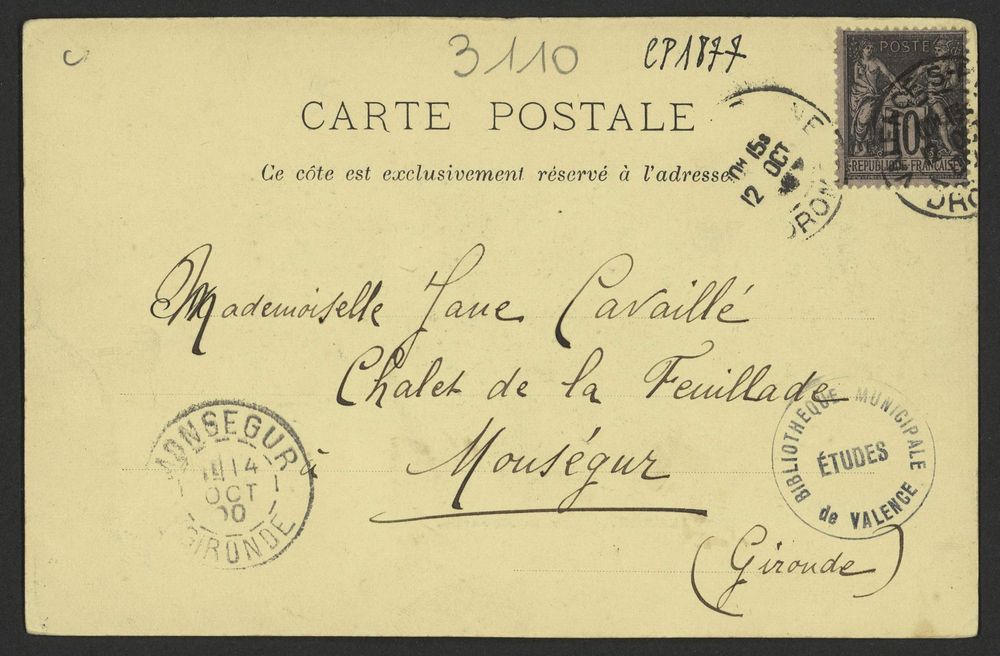 3110
CP1877
POSTE
10
RÉPUBLIQUE FRANÇAISE
CARTE POSTALE
Ce côte est exclusivement réservé à l'adresse
15
12 OCT
Mademoiselle Jane Cavaillé
Chalet de la Feuillade
à Monségur
(Gironde)
MONSEGUR
14
OCT
00
GIRONDE
BIBLIOTHEQUE MUNICIPALE
ÉTUDES
de VALENCE